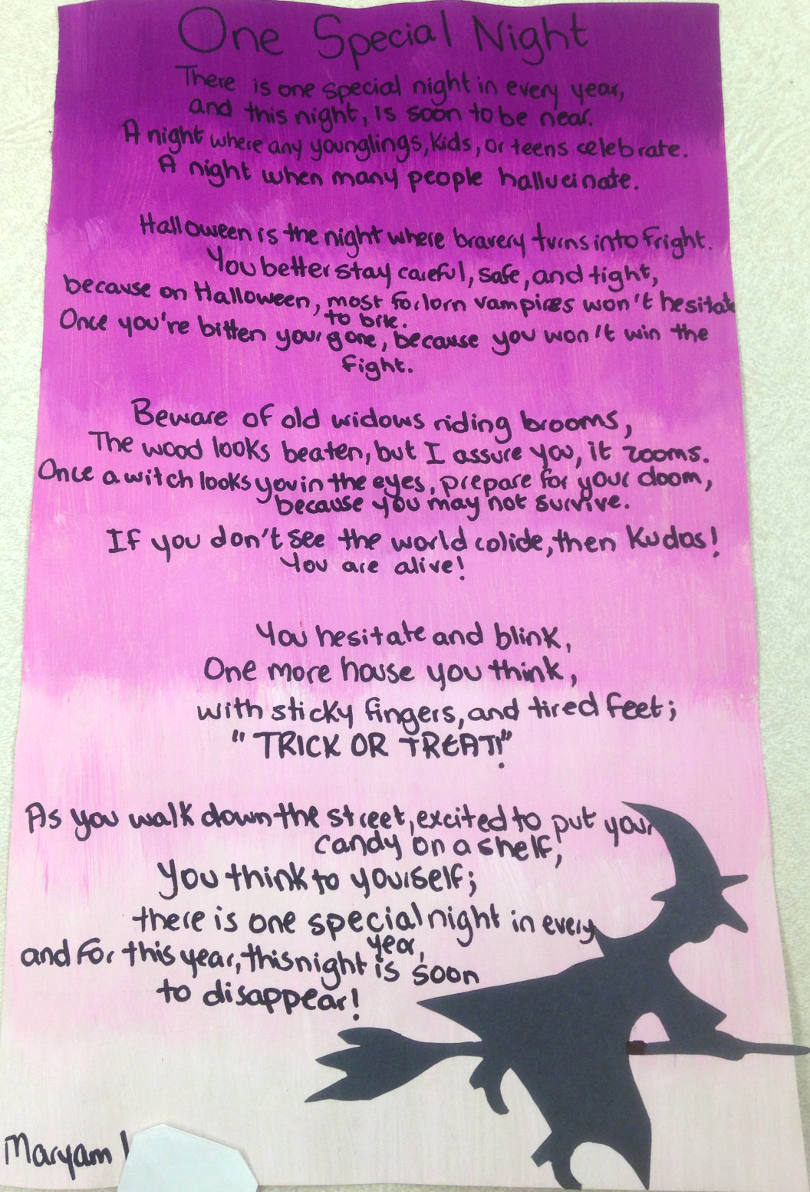 One Special Night
There is one special night in every year,
and this night, is soon to be near.
A night where any younglings, kids, or teens celebrate.
A night when many people hallucinate.
Halloween is the night where bravery turns into fright.
You better stay careful, safe, and tight,
because on Halloween, most forlorn vampires won't hesitate
to bite.
Once you're bitten your gone, because you won't win the
fight.
Beware of old widows riding brooms,
The wood looks beaten, but I assure you, it zooms.
Once a witch looks you in the eyes, prepare for your doom,
because you may not survive.
If you don't see the world colide, then Kudos!
You are alive!
You hesitate and blink,
One more house you think,
with sticky fingers, and tired feet;
"TRICK OR TREAT!"
As you walk down the street, excited to put your
candy on a shelf,
You think to yourself;
there is one special night in every
year,
and for this year, this night is soon
to disappear!
Maryam